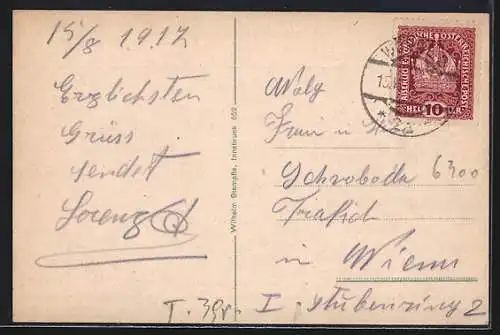 15/8 1917
Herzlichsten
Gruss
sendet
Lorenz
Wilhelm Stempfle, Innsbruck 652
KAISERLICHE KÖNIGLICHE ÖSTERREICHISCHE POST
HELLER 10
Frau
Schroboda 6300
Trafik
in Wien
I. Stubenring 2